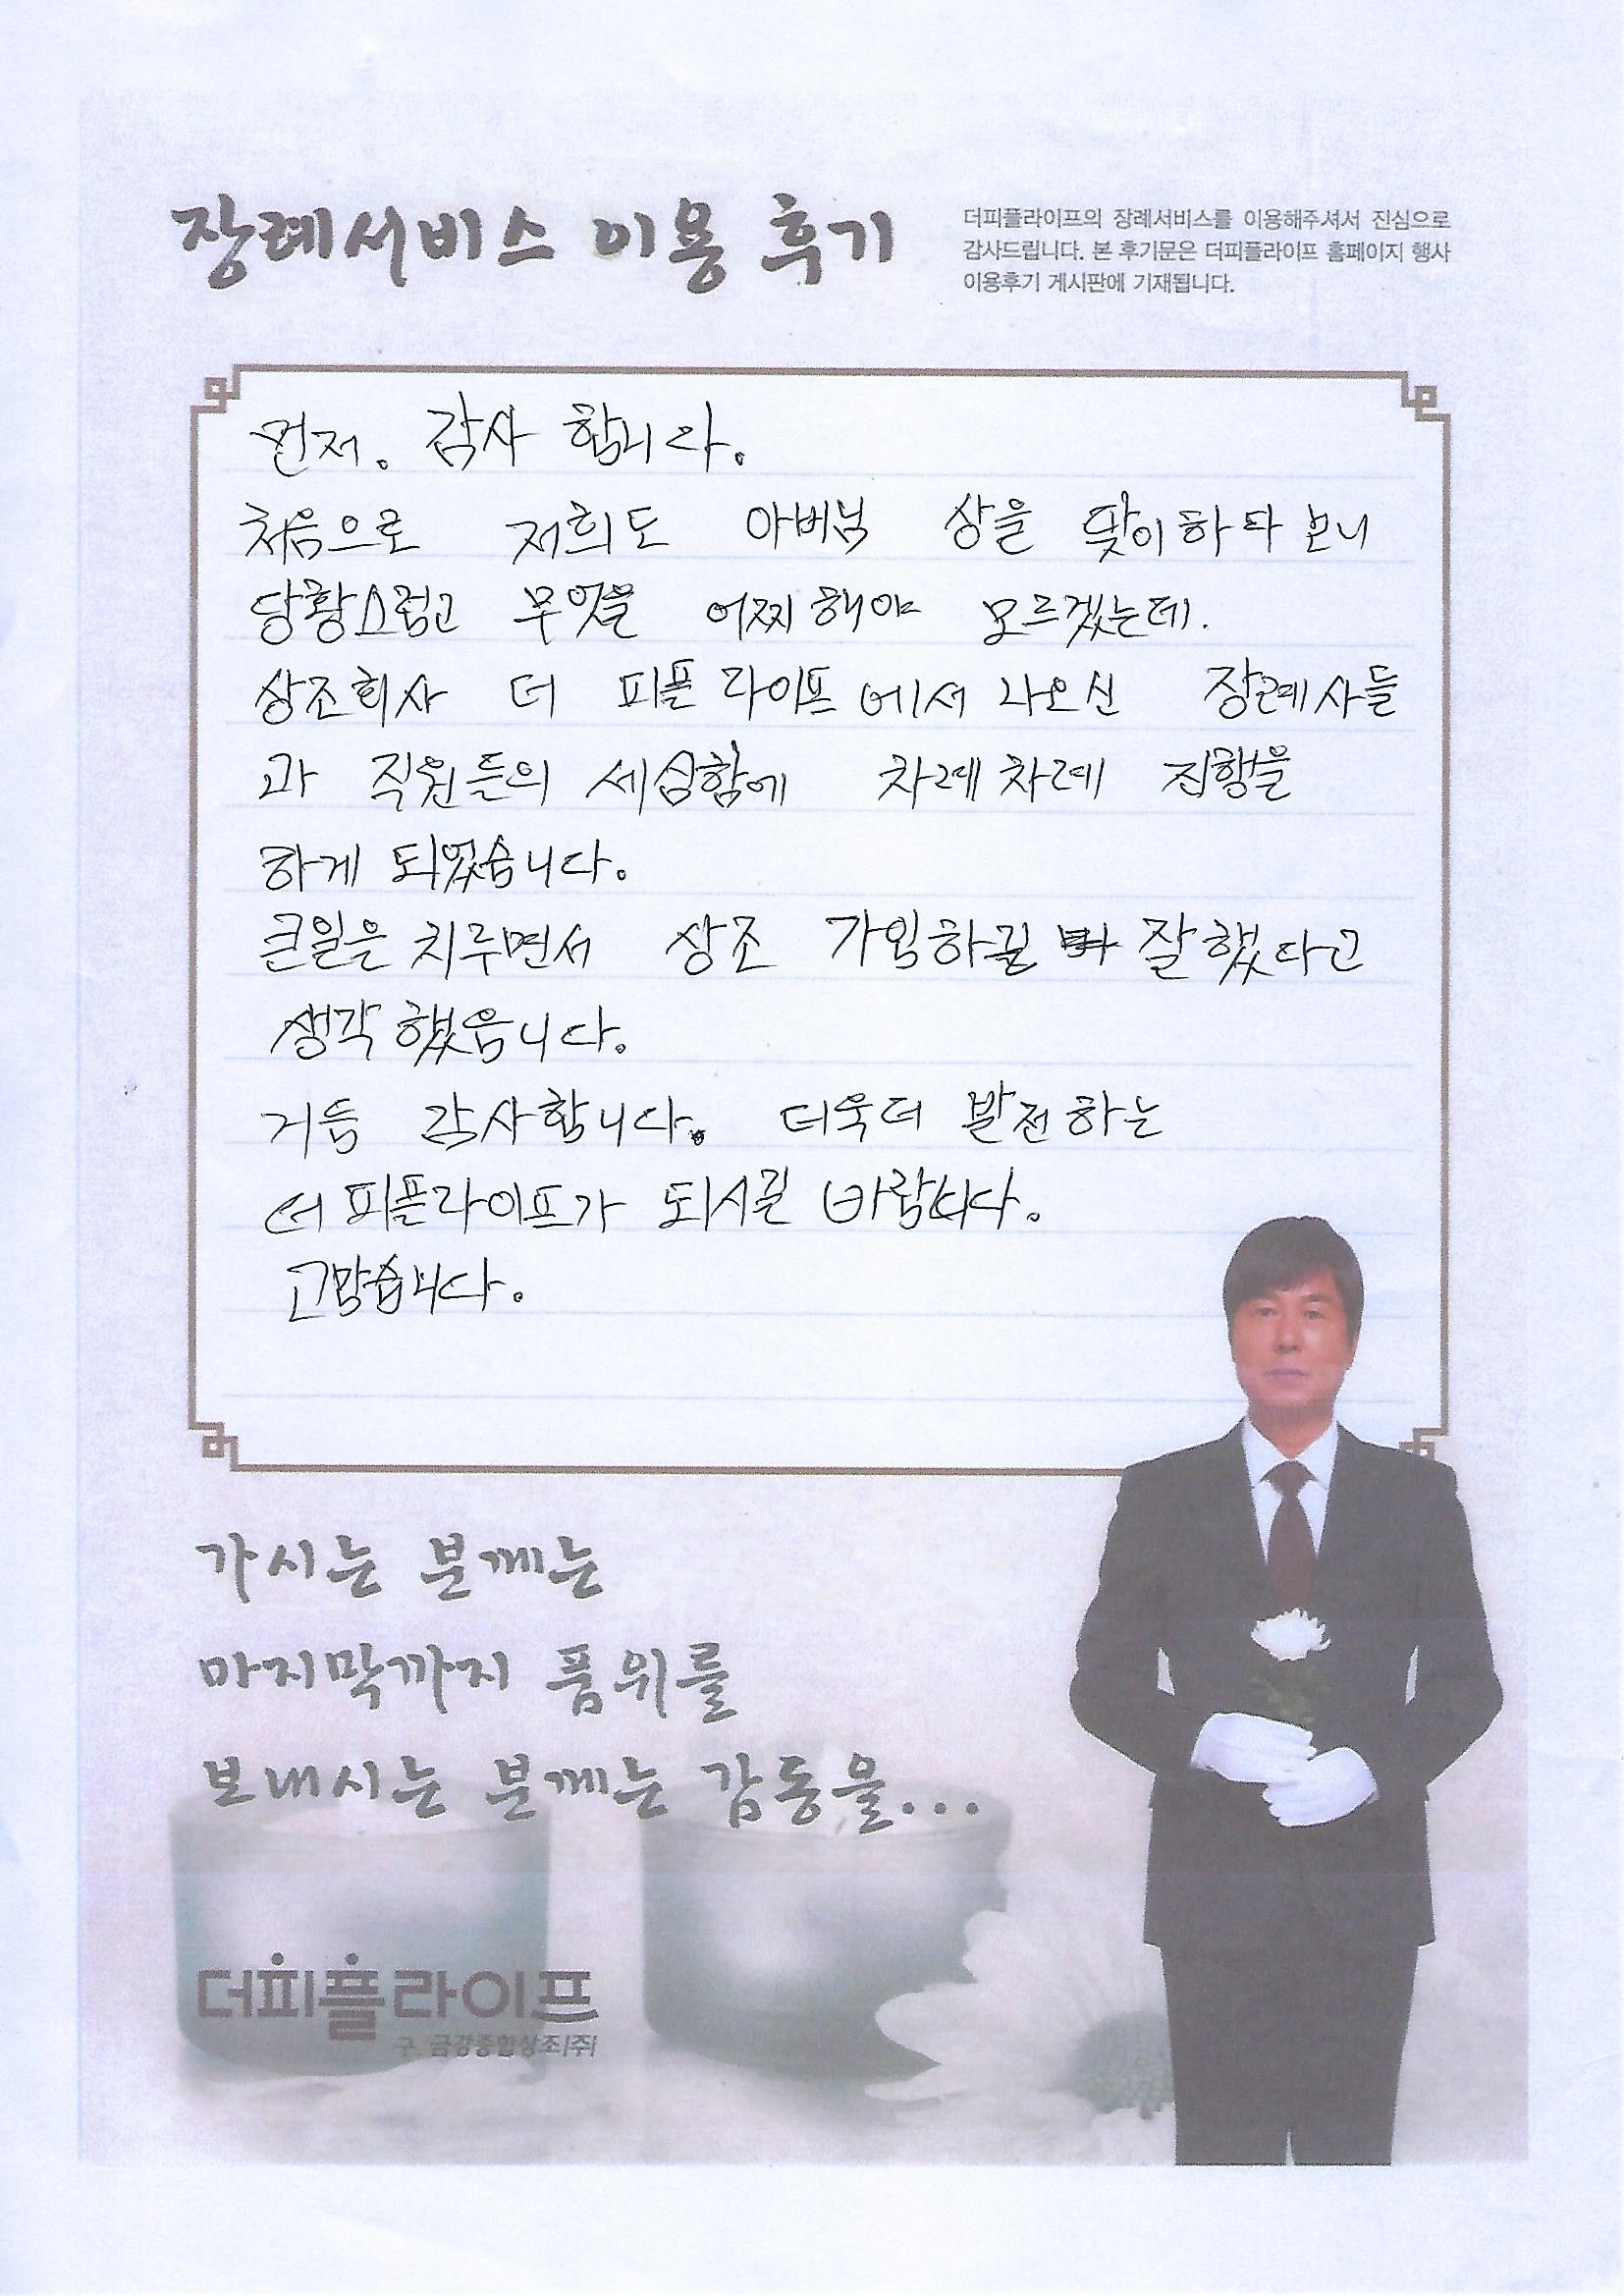 장례서비스 이용 후기
더피플라이프의 장례서비스를 이용해주셔서 진심으로
감사드립니다. 본 후기문은 더피플라이프 홈페이지 행사
이용후기 게시판에 기재됩니다.
먼저. 감사 합니다.
처음으로 저희도 아버님 상을 맞이하다보니
당황스럽고 무엇을 어찌해야 모르겠는데.
상조회사 더 피플라이프에서 나오신 장례사들
과 직원들의 세심함에 차례차례 진행을
하게 되었습니다.
큰일은 치루면서 상조 가입하길 잘했다고
생각했읍니다.
거듭 감사합니다. 더욱더 발전하는
더피플라이프가 되시길 바랍니다.
고맙습니다.
가시는 분께는
마지막까지 품위를
보내시는 분께는 감동을...
더피플라이프
구. 금강종합상조(주)